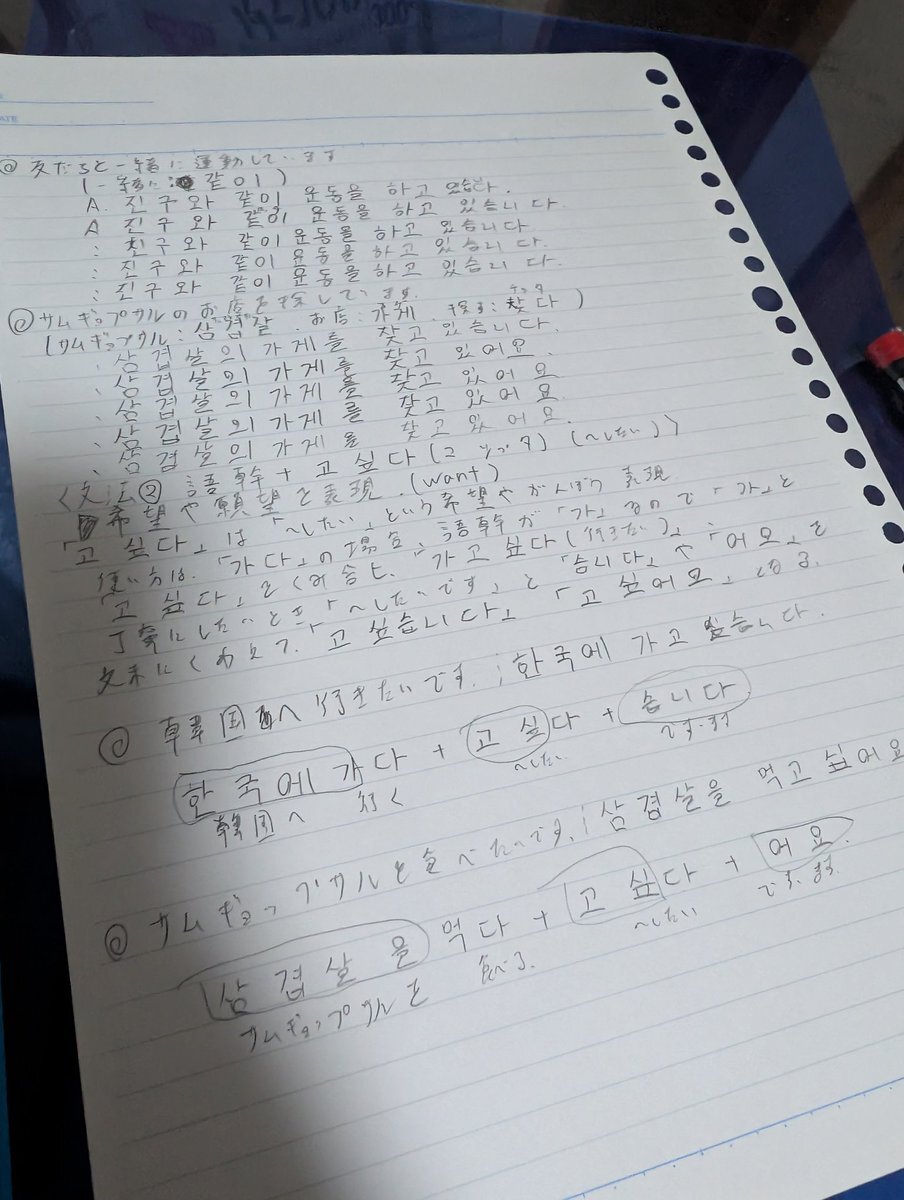 ◎ 友だちと一緒に運動しています
(一緒に: 같이)
A. 진구와 같이 운동을 하고 있습니다.
A 진구와 같이 운동을 하고 있습니다.
: 친구와 같이 운동을 하고 있습니다
: 진구와 같이 운동을 하고 있습니다.
: 진구와 같이 운동을 하고 있습니다.
◎ サムギョプサルのお店を探しています.
(サムギョプサル: 삼겹살. お店: 가게. 探る: 찾다)
: 삼겹살의 가게를 찾고 있습니다.
: 삼겹살의 가게를 찾고 있어요.
: 삼겹살의 가게를 찾고 있어요
: 삼겹살의 가게를 찾고 있어요
: 삼겹살의 가게을 찾고 있어요.
〈文法② 語幹 + 고 싶다 (コ シプタ) (〜したい)〉
希望や願望を表現. (want)
「고 싶다」は「〜したい」という希望やがんぼう表現.
使い方は.「가다」の場合、語幹が「가」なので「가」と
「고 싶다」をくみ合せ、「가고 싶다(行きたい)」、
丁寧にしたいとき「〜したいです」と「습니다」や「어요」を
文末にくわえて.「고 싶습니다」「고 싶어요」になる.
◎ 韓国へ行きたいです. : 한국에 가고 싶습니다.
한국에 가다 + 고 싶다 + 습니다
韓国へ 行く 〜したい です.ます
◎ サムギョップサルを食べたいです. : 삼겹살을 먹고 싶어요
삼겹살을 먹다 + 고 싶다 + 어요
サムギョップサルを 食べる. 〜したい です.ます.